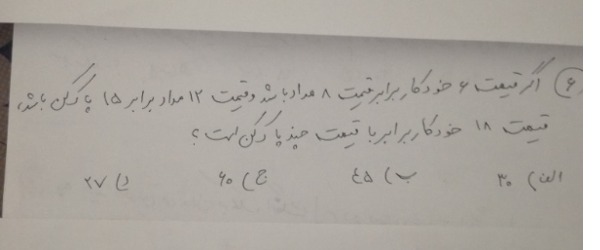 ۶) اگر قیمت ۶ خودکار برابر قیمت ۸ مداد باشد و قیمت ۱۲ مداد برابر ۱۵ پاک‌کن باشد،
قیمت ۱۸ خودکار برابر با قیمت چند پاک‌کن است؟
الف) ۳۰ ب) ۴۵ ج) ۶۰ د) ۲۷